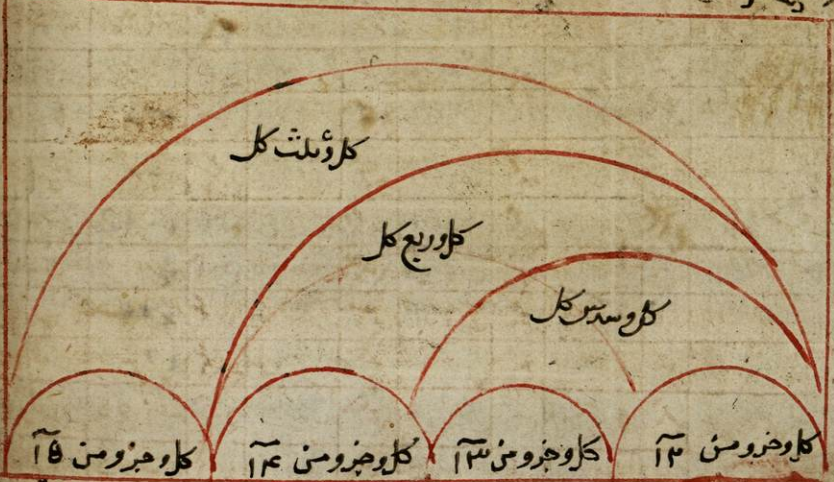 كل وثلث كل
كل وربع كل
كل وسدس كل
كل وجزو من ١٢
كل وجزو من ١٣
كل وجزو من ١٤
كل وجزو من ١٥